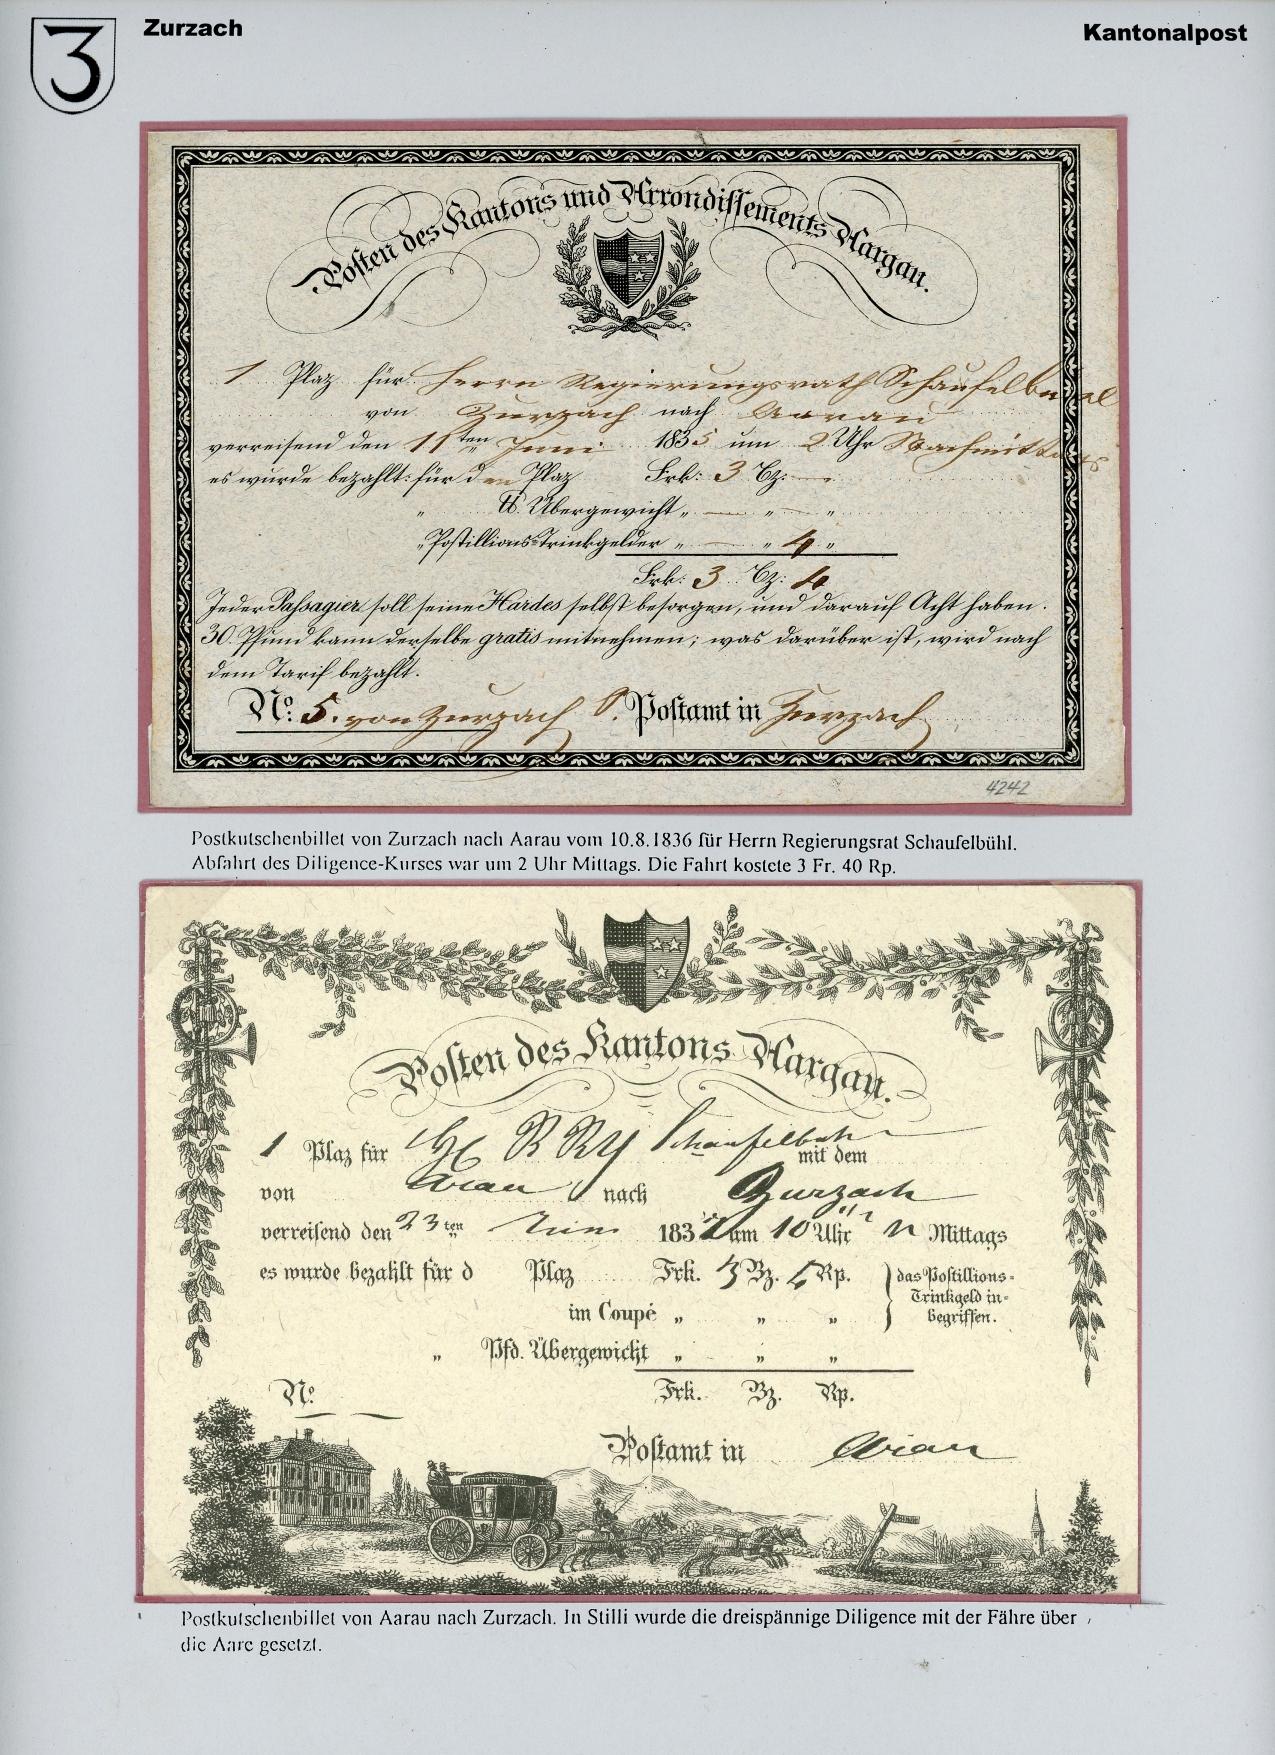 3
Zurzach
Kantonalpost
Posten des Kantons und Arrondissements Aargau.
1 Plaz für Herrn Regierungsrath Schaufelbuel
von Zurzach nach Aarau
verreisend den 11ten Juni 1835 um 2 Uhr Nachmittags
es wurde bezahlt: für den Plaz Frk: 3 Bz: —
„ ℔ Übergewicht „ — „ — „
„ Postillions-Trinkgelder „ — „ 4 „
Frk: 3 Bz: 4
Jeder Passagier soll seine Hardes selbst besorgen, und darauf Acht haben.
30 Pfund kann derselbe gratis mitnehmen; was darüber ist, wird nach
dem Tarif bezahlt.
No: 5. von Zurzach Postamt in Zurzach
4242
Postkutschenbillet von Zurzach nach Aarau vom 10.8.1836 für Herrn Regierungsrat Schaufelbühl.
Abfahrt des Diligence-Kurses war um 2 Uhr Mittags. Die Fahrt kostete 3 Fr. 40 Rp.
Posten des Kantons Aargau.
1 Plaz für Schaufelbuhl
mit dem
von Arau nach Zurzach
verreisend den 23ten Juni 183 um 10 Uhr Mittags
es wurde bezahlt für d Plaz Frk. 3 Bz. Rp. das Postillions-
Trinkgeld in-
begriffen.
im Coupé „ „ „
„ Pfd. Übergewicht „ „ „
No. Frk. Bz. Rp.
Postamt in Arau
Postkutschenbillet von Aarau nach Zurzach. In Stilli wurde die dreispännige Diligence mit der Fähre über
die Aare gesetzt.